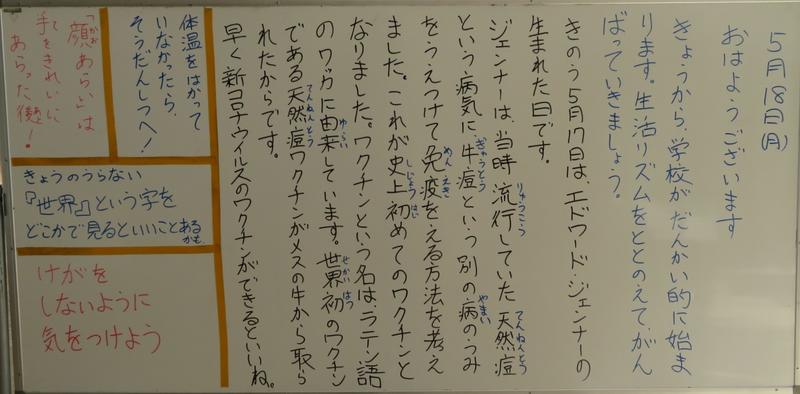 ５月18日(月)
おはようございます
きょうから、学校がだんかい的に始ま
ります。生活リズムをととのえて、がん
ばっていきましょう。
きのう５月17日は、エドワード・ジェンナーの
生まれた日です。
ジェンナーは、当時流行していた天然痘
りゅうこう
てんねんとう
という病気に、牛痘という別の病のうみ
ぎゅうとう
やまい
をうえつけて免疫をえる方法を考え
めんえき
ました。これが史上初めてのワクチンと
しじょうはじ
なりました。ワクチンという名は、ラテン語
のワッカに由来しています。世界初のワクチン
ゆらい
せかいはつ
である天然痘ワクチンがメスの牛から取ら
てんねんとう
れたからです。
早く新コロナウイルスのワクチンができるといいね。
体温をはかって
いなかったら、
そうだんしつへ！
「顔あらい」は
かお
手をきれいに
て
あらった後！
きょうのうらない
『世界』という字を
どこかで見るといいことあるかも。
けがを
しないように
気をつけよう